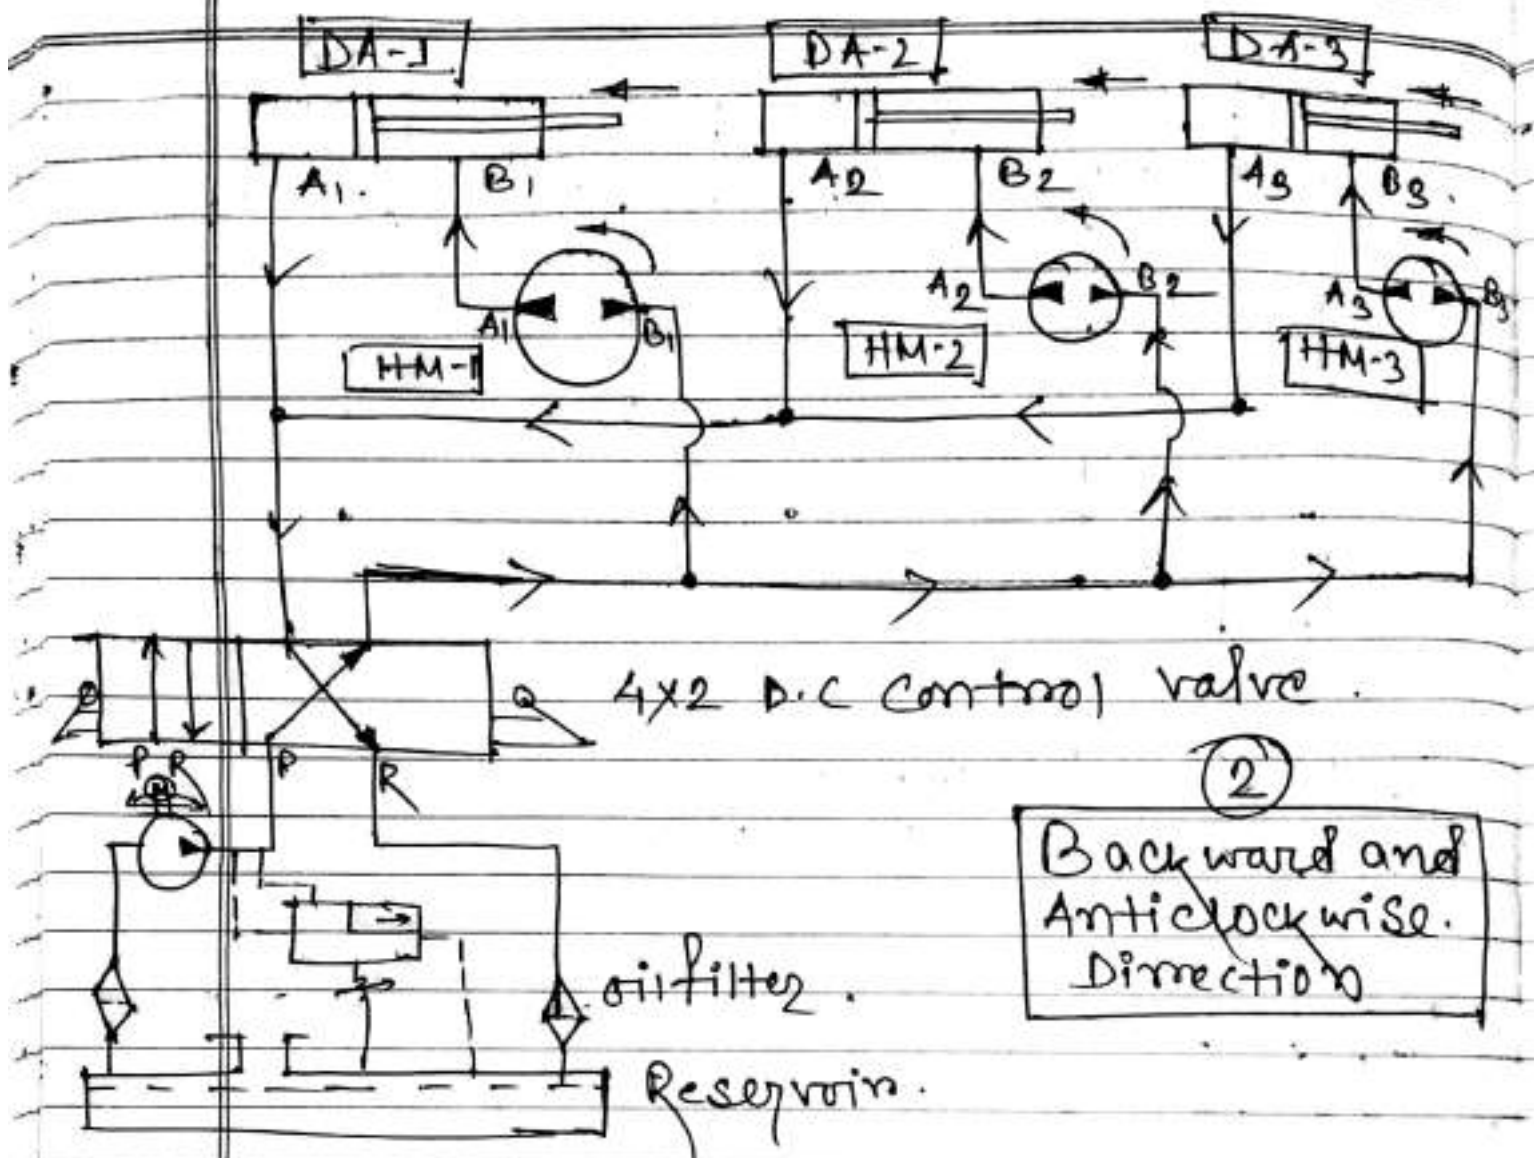 DA-1 DA-2 DA-3
A1. B1 A2 B2 A3 B3.
A1 B1 A2 B2 A3 B3
HM-1 HM-2 HM-3
4x2 D.C control valve.
P R P R
M
2
Backward and
Anticlockwise.
Dirrection
oilfilter.
Reservoir.